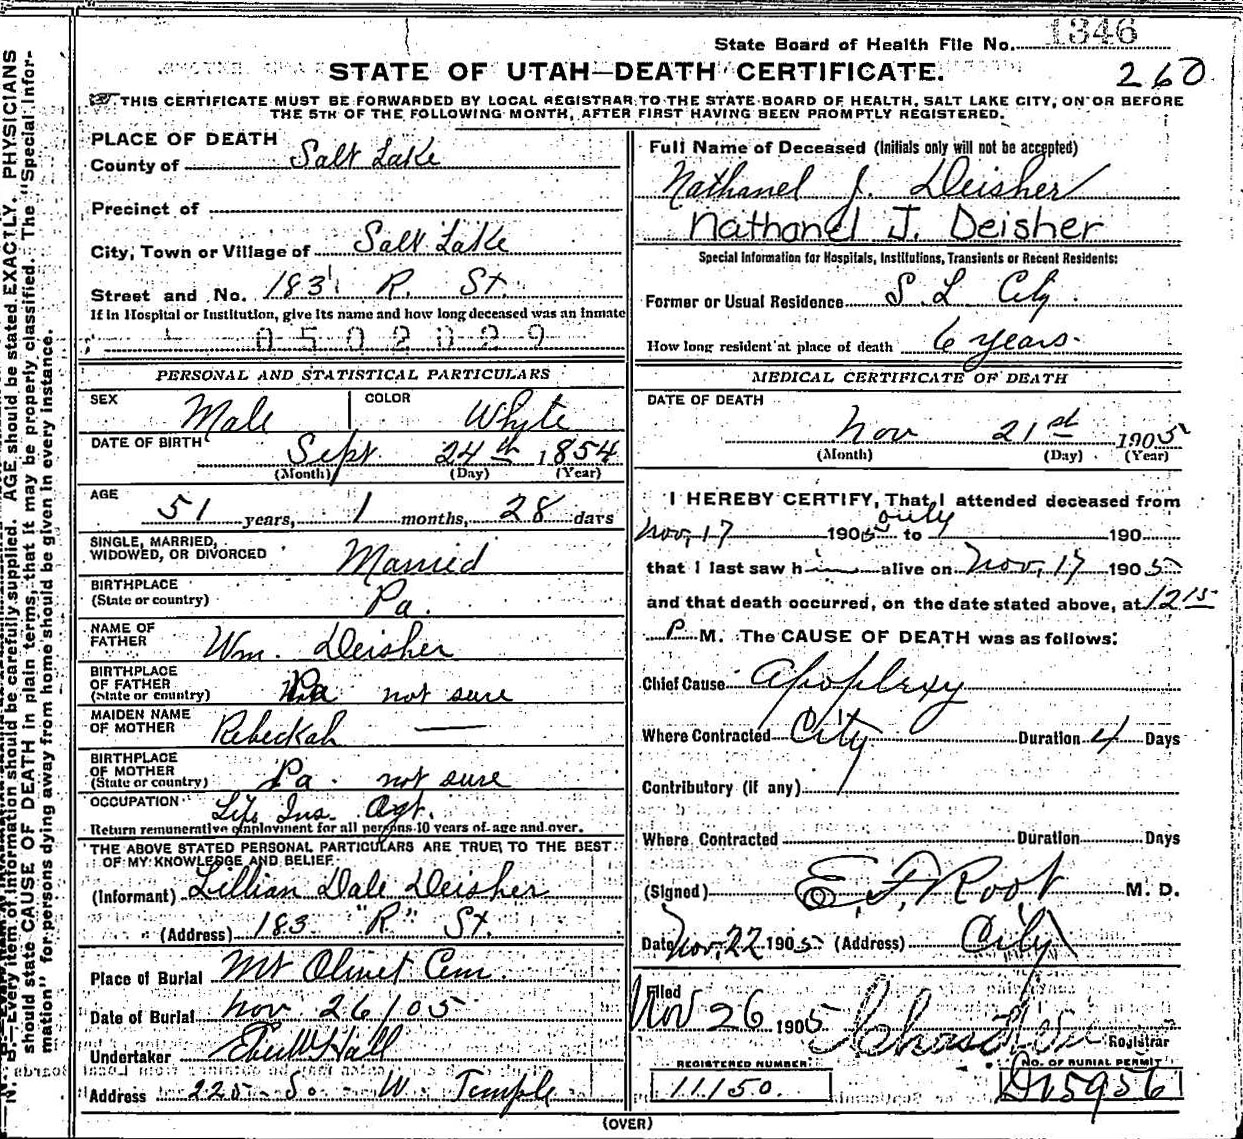 State Board of Health File No. 1346
STATE OF UTAH—DEATH CERTIFICATE.
260
THIS CERTIFICATE MUST BE FORWARDED BY LOCAL REGISTRAR TO THE STATE BOARD OF HEALTH, SALT LAKE CITY, ON OR BEFORE
THE 5TH OF THE FOLLOWING MONTH, AFTER FIRST HAVING BEEN PROMPTLY REGISTERED.
PLACE OF DEATH
County of Salt Lake
Precinct of
City, Town or Village of Salt Lake
Street and No. 183 R. St.
If in Hospital or Institution, give its name and how long deceased was an inmate
0502029
PERSONAL AND STATISTICAL PARTICULARS
SEX Male COLOR Whyte
DATE OF BIRTH Sept. 24th 1854
(Month) (Day) (Year)
AGE
51 years, 1 months, 28 days
SINGLE, MARRIED,
WIDOWED, OR DIVORCED Married
BIRTHPLACE
(State or country) Pa.
NAME OF
FATHER Wm. Deisher
BIRTHPLACE
OF FATHER
(State or country) Pa not sure
MAIDEN NAME
OF MOTHER Rebeckah —
BIRTHPLACE
OF MOTHER
(State or country) Pa. not sure
OCCUPATION Life Ins. Agt.
Return remunerative employment for all persons 10 years of age and over.
THE ABOVE STATED PERSONAL PARTICULARS ARE TRUE TO THE BEST
OF MY KNOWLEDGE AND BELIEF.
(Informant) Lillian Dale Deisher
(Address) 183 "R" St.
Place of Burial Mt Olivet Cem.
Date of Burial Nov 26/05
Undertaker Eber W Hall
Address 225 So. W. Temple
Full Name of Deceased (Initials only will not be accepted)
Nathanel J. Deisher
Nathanel J. Deisher
Special Information for Hospitals, Institutions, Transients or Recent Residents:
Former or Usual Residence S. L City
How long resident at place of death 6 years.
MEDICAL CERTIFICATE OF DEATH
DATE OF DEATH
Nov 21st 1905
(Month) (Day) (Year)
I HEREBY CERTIFY, That I attended deceased from
Nov, 17 1905 to only 190
that I last saw him alive on Nov, 17 1905
and that death occurred, on the date stated above, at 12 15
P M. The CAUSE OF DEATH was as follows:
Chief Cause Apoplexy
Where Contracted City Duration 4 Days
Contributory (if any)
Where Contracted Duration Days
(Signed) E. F. Root M. D.
Date Nov. 22 1905 (Address) City
Filed
Nov 26 1905
Registrar
REGISTERED NUMBER
11150.
NO. OF BURIAL PERMIT
D 15956
(OVER)
N. B.—Every item of information should be carefully supplied. AGE should be stated EXACTLY. PHYSICIANS
should state CAUSE OF DEATH in plain terms, that it may be properly classified. The "Special Infor-
mation" for persons dying away from home should be given in every instance.